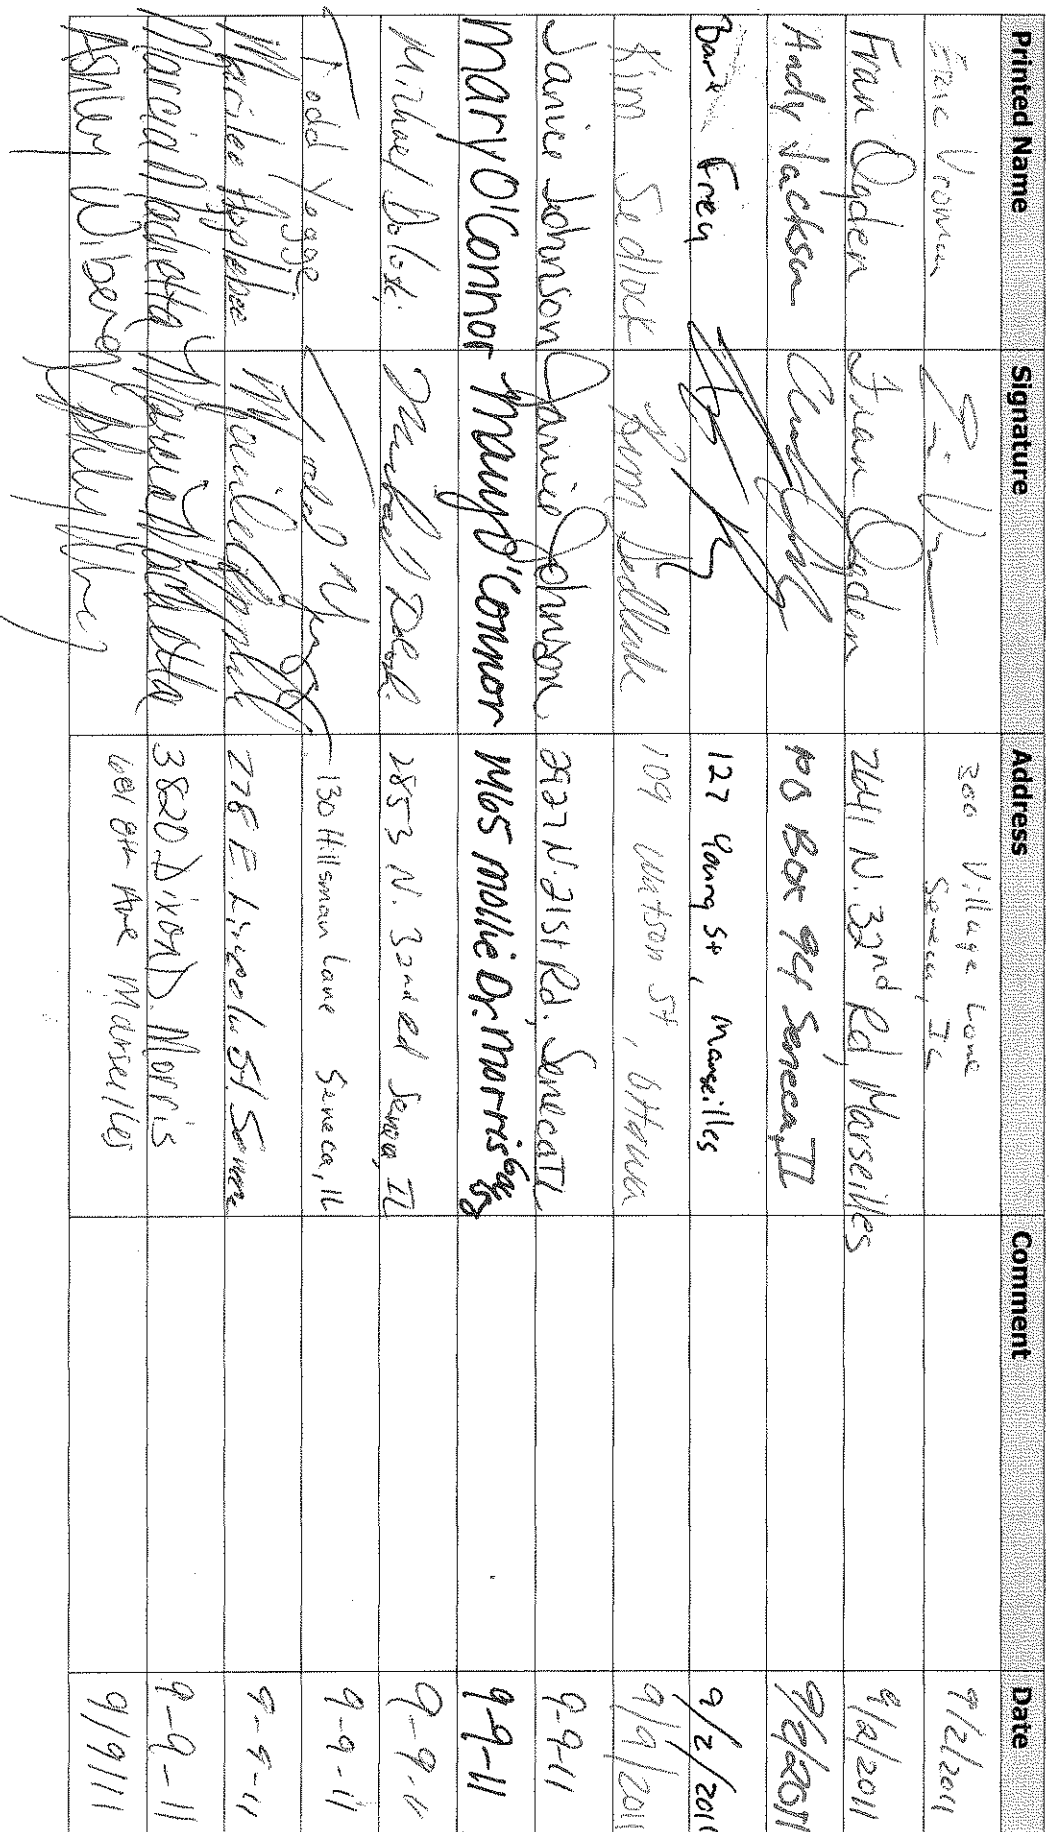 Printed Name Signature Address Comment Date
Eric Vroman 300 Village Lane Seneca, IL 9/2/2011
Fran Ogden Fran Ogden 2641 N. 32nd Rd, Marseilles 9/2/2011
Andy Jackson PO Box 94 Seneca, IL 9/2/2011
Frey 127 Young St, Marseilles 9/2/2011
Kim Sedlock Kim Sedlock 109 Watson St, Ottawa 9/9/2011
Janice Johnson Janice Johnson 2927 N. 21st Rd. Seneca IL 9-9-11
Mary O'Connor Mary O'Connor 1465 Mollie Dr. Morris 9-9-11
Michael 2853 N. 32nd Rd Seneca, IL 9-9-11
Todd Yogge 130 Hillsman Lane Seneca, IL 9-9-11
Marilee Applebee 278 E. Lincoln St Seneca 9-9-11
Marcia Machotta Marcia Machotta 3820 Dixon D. Morris 9-9-11
Ashley Wiberg Ave Marseilles 9/9/11